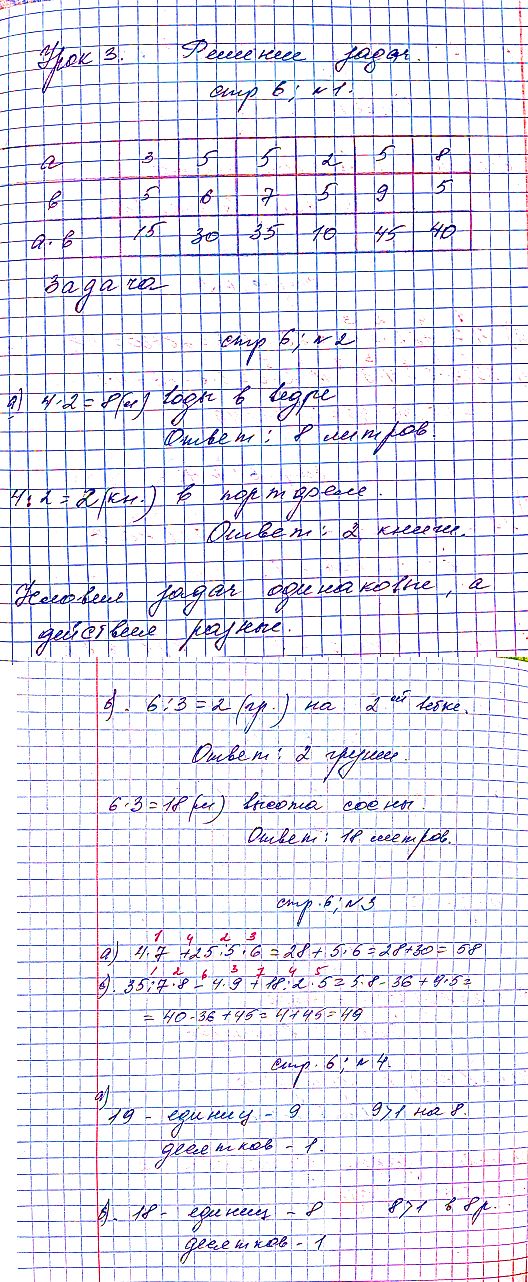 Урок 3. Решение задач.
стр 6; №1.
а 3 5 5 2 5 8
в 5 6 7 5 9 5
а·в 15 30 35 10 45 40
Задача
стр 6; №2
а) 4·2=8(л) воды в ведре
Ответ: 8 литров.
4:2=2(кн.) в портфеле.
Ответ: 2 книги.
Условия задач одинаковые, а
действия разные.
б). 6:3=2(гр.) на 2ой ветке.
Ответ: 2 груши.
6·3=18(м) высота сосны.
Ответ: 18 метров.
стр.6; №3
1 4 2 3
а) 4·7+25:5·6=28+5·6=28+30=58
1 2 6 3 7 4 5
б). 35:7·8-4·9+18:2·5=5·8-36+9·5=
=40-36+45=4+45=49
стр.6; №4.
а)
19 - единиц - 9 9>1 на 8.
десятков - 1.
б). 18 - единиц - 8 8>1 в 8р.
десятков - 1